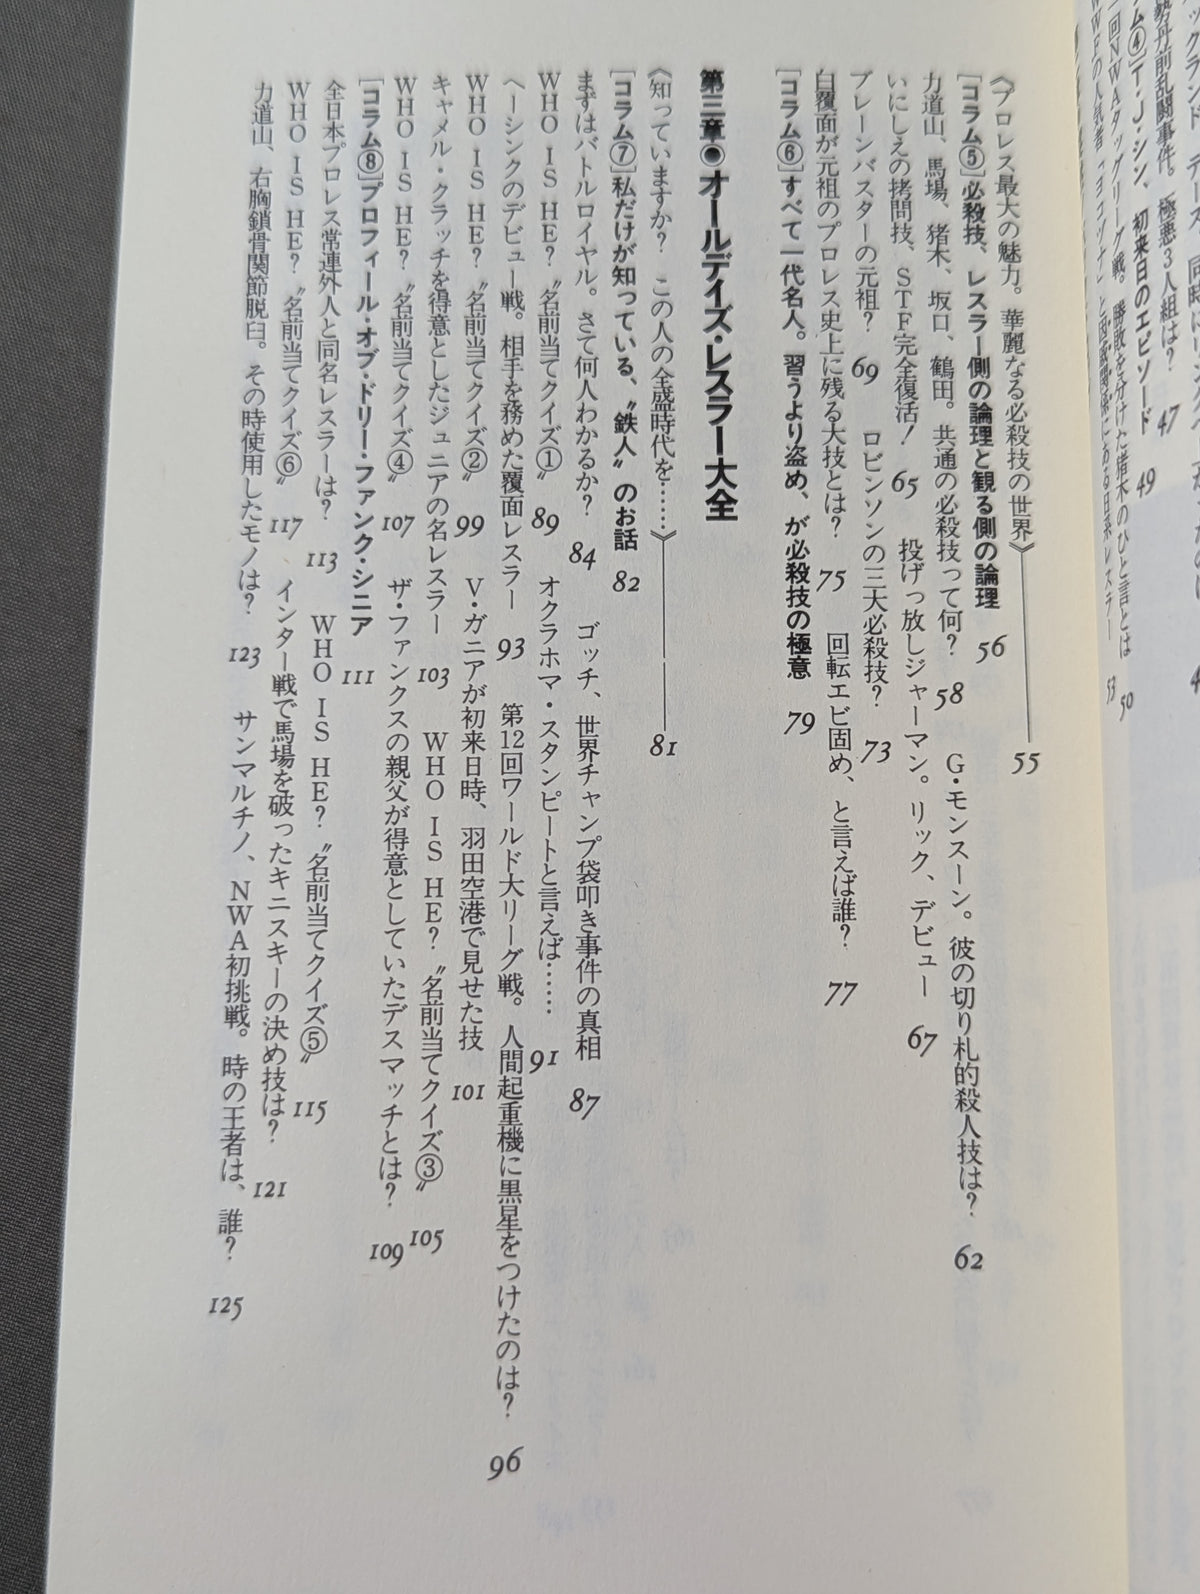 ム④]T・J・シン、初来日のエピソード 49
《プロレス最大の魅力。華麗なる必殺技の世界》 55
[コラム⑤]必殺技、レスラー側の論理と観る側の論理 56
力道山、馬場、猪木、坂口、鶴田。共通の必殺技って何? 58 G・モンスーン。彼の切り札的殺人技は? 62
いにしえの拷問技、STF完全復活! 65 投げっ放しジャーマン。リック、デビュー 67
ブレーンバスターの元祖? 69 ロビンソンの三大必殺技? 73
白覆面が元祖のプロレス史上に残る大技とは? 75 回転エビ固め、と言えば誰? 77
[コラム⑥]すべて一代名人。習うより盗め、が必殺技の極意 79
第三章●オールデイズ・レスラー大全
《知っていますか? この人の全盛時代を……》 81
[コラム⑦]私だけが知っている、〝鉄人〟のお話 82
まずはバトルロイヤル。さて何人わかるか? 84 ゴッチ、世界チャンプ袋叩き事件の真相 87
WHO IS HE? 〝名前当てクイズ①〟 89 オクラホマ・スタンピートと言えば…… 91
ヘーシンクのデビュー戦。相手を務めた覆面レスラー 93 第12回ワールド大リーグ戦。人間起重機に黒星をつけたのは? 96
WHO IS HE? 〝名前当てクイズ②〟 99 V・ガニアが初来日時、羽田空港で見せた技 101
キャメル・クラッチを得意としたジュニアの名レスラー 103 WHO IS HE? 〝名前当てクイズ③〟 105
WHO IS HE? 〝名前当てクイズ④〟 107 ザ・ファンクスの親父が得意としていたデスマッチとは? 109
[コラム⑧]プロフィール・オブ・ドリー・ファンク・シニア 111
全日本プロレス常連外人と同名レスラーは? 113 WHO IS HE? 〝名前当てクイズ⑤〟 115
WHO IS HE? 〝名前当てクイズ⑥〟 117 インター戦で馬場を破ったキニスキーの決め技は? 121
力道山、右胸鎖骨関節脱臼。その時使用したモノは? 123 サンマルチノ、NWA初挑戦。時の王者は、誰? 125